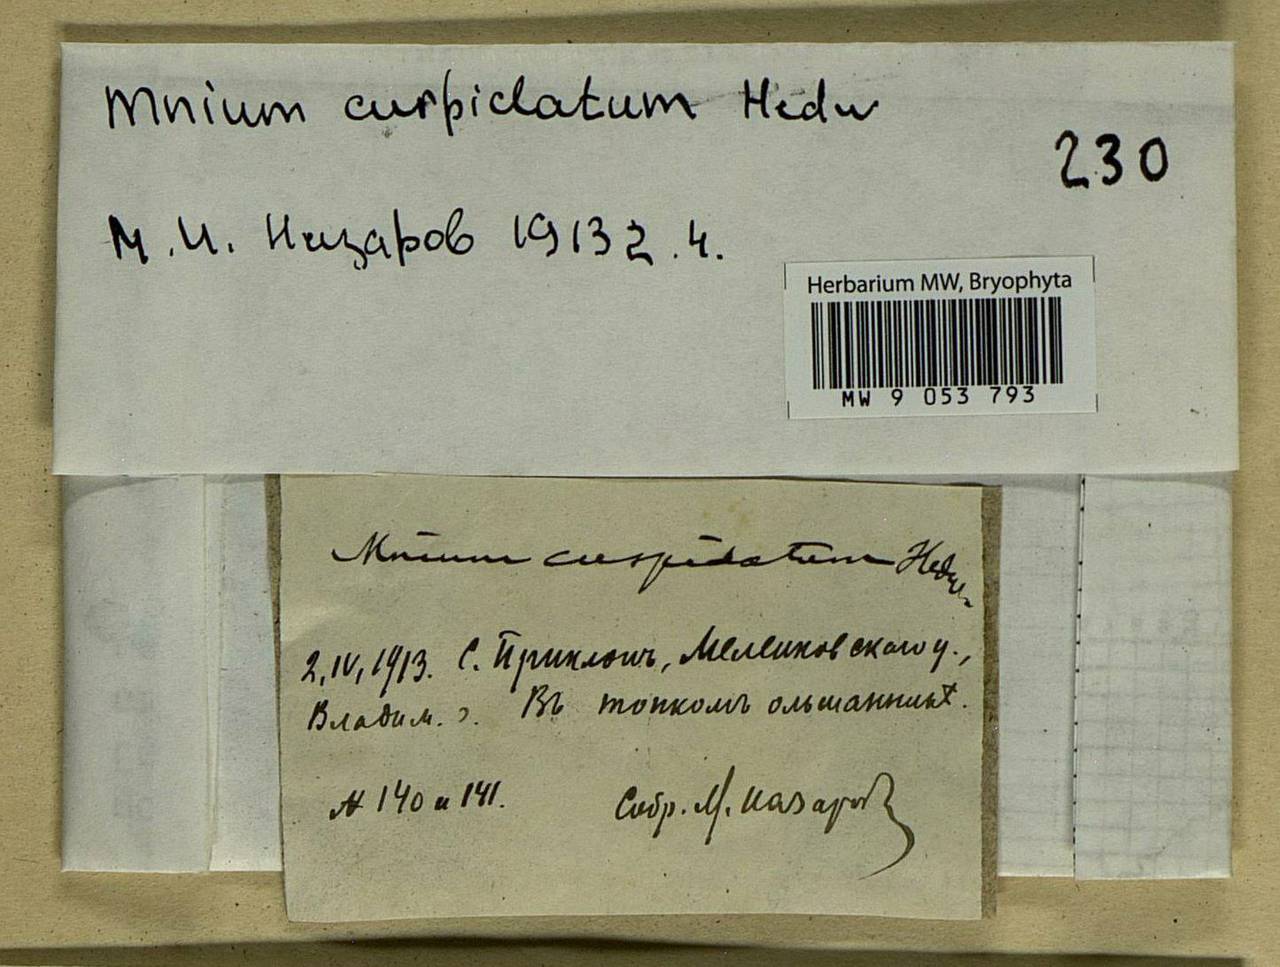 Mnium cuspidatum Hedw
230
М.И. Назаров 1913 г. 4.
Herbarium MW, Bryophyta
MW 9 053 793
Mnium cuspidatum Hedw.
2, IV, 1913. С. Приклонъ, Меленковского у.,
Владим. г. Въ топкомъ ольшанникѣ.
№ 140 и 141.
Собр. М. Назаров